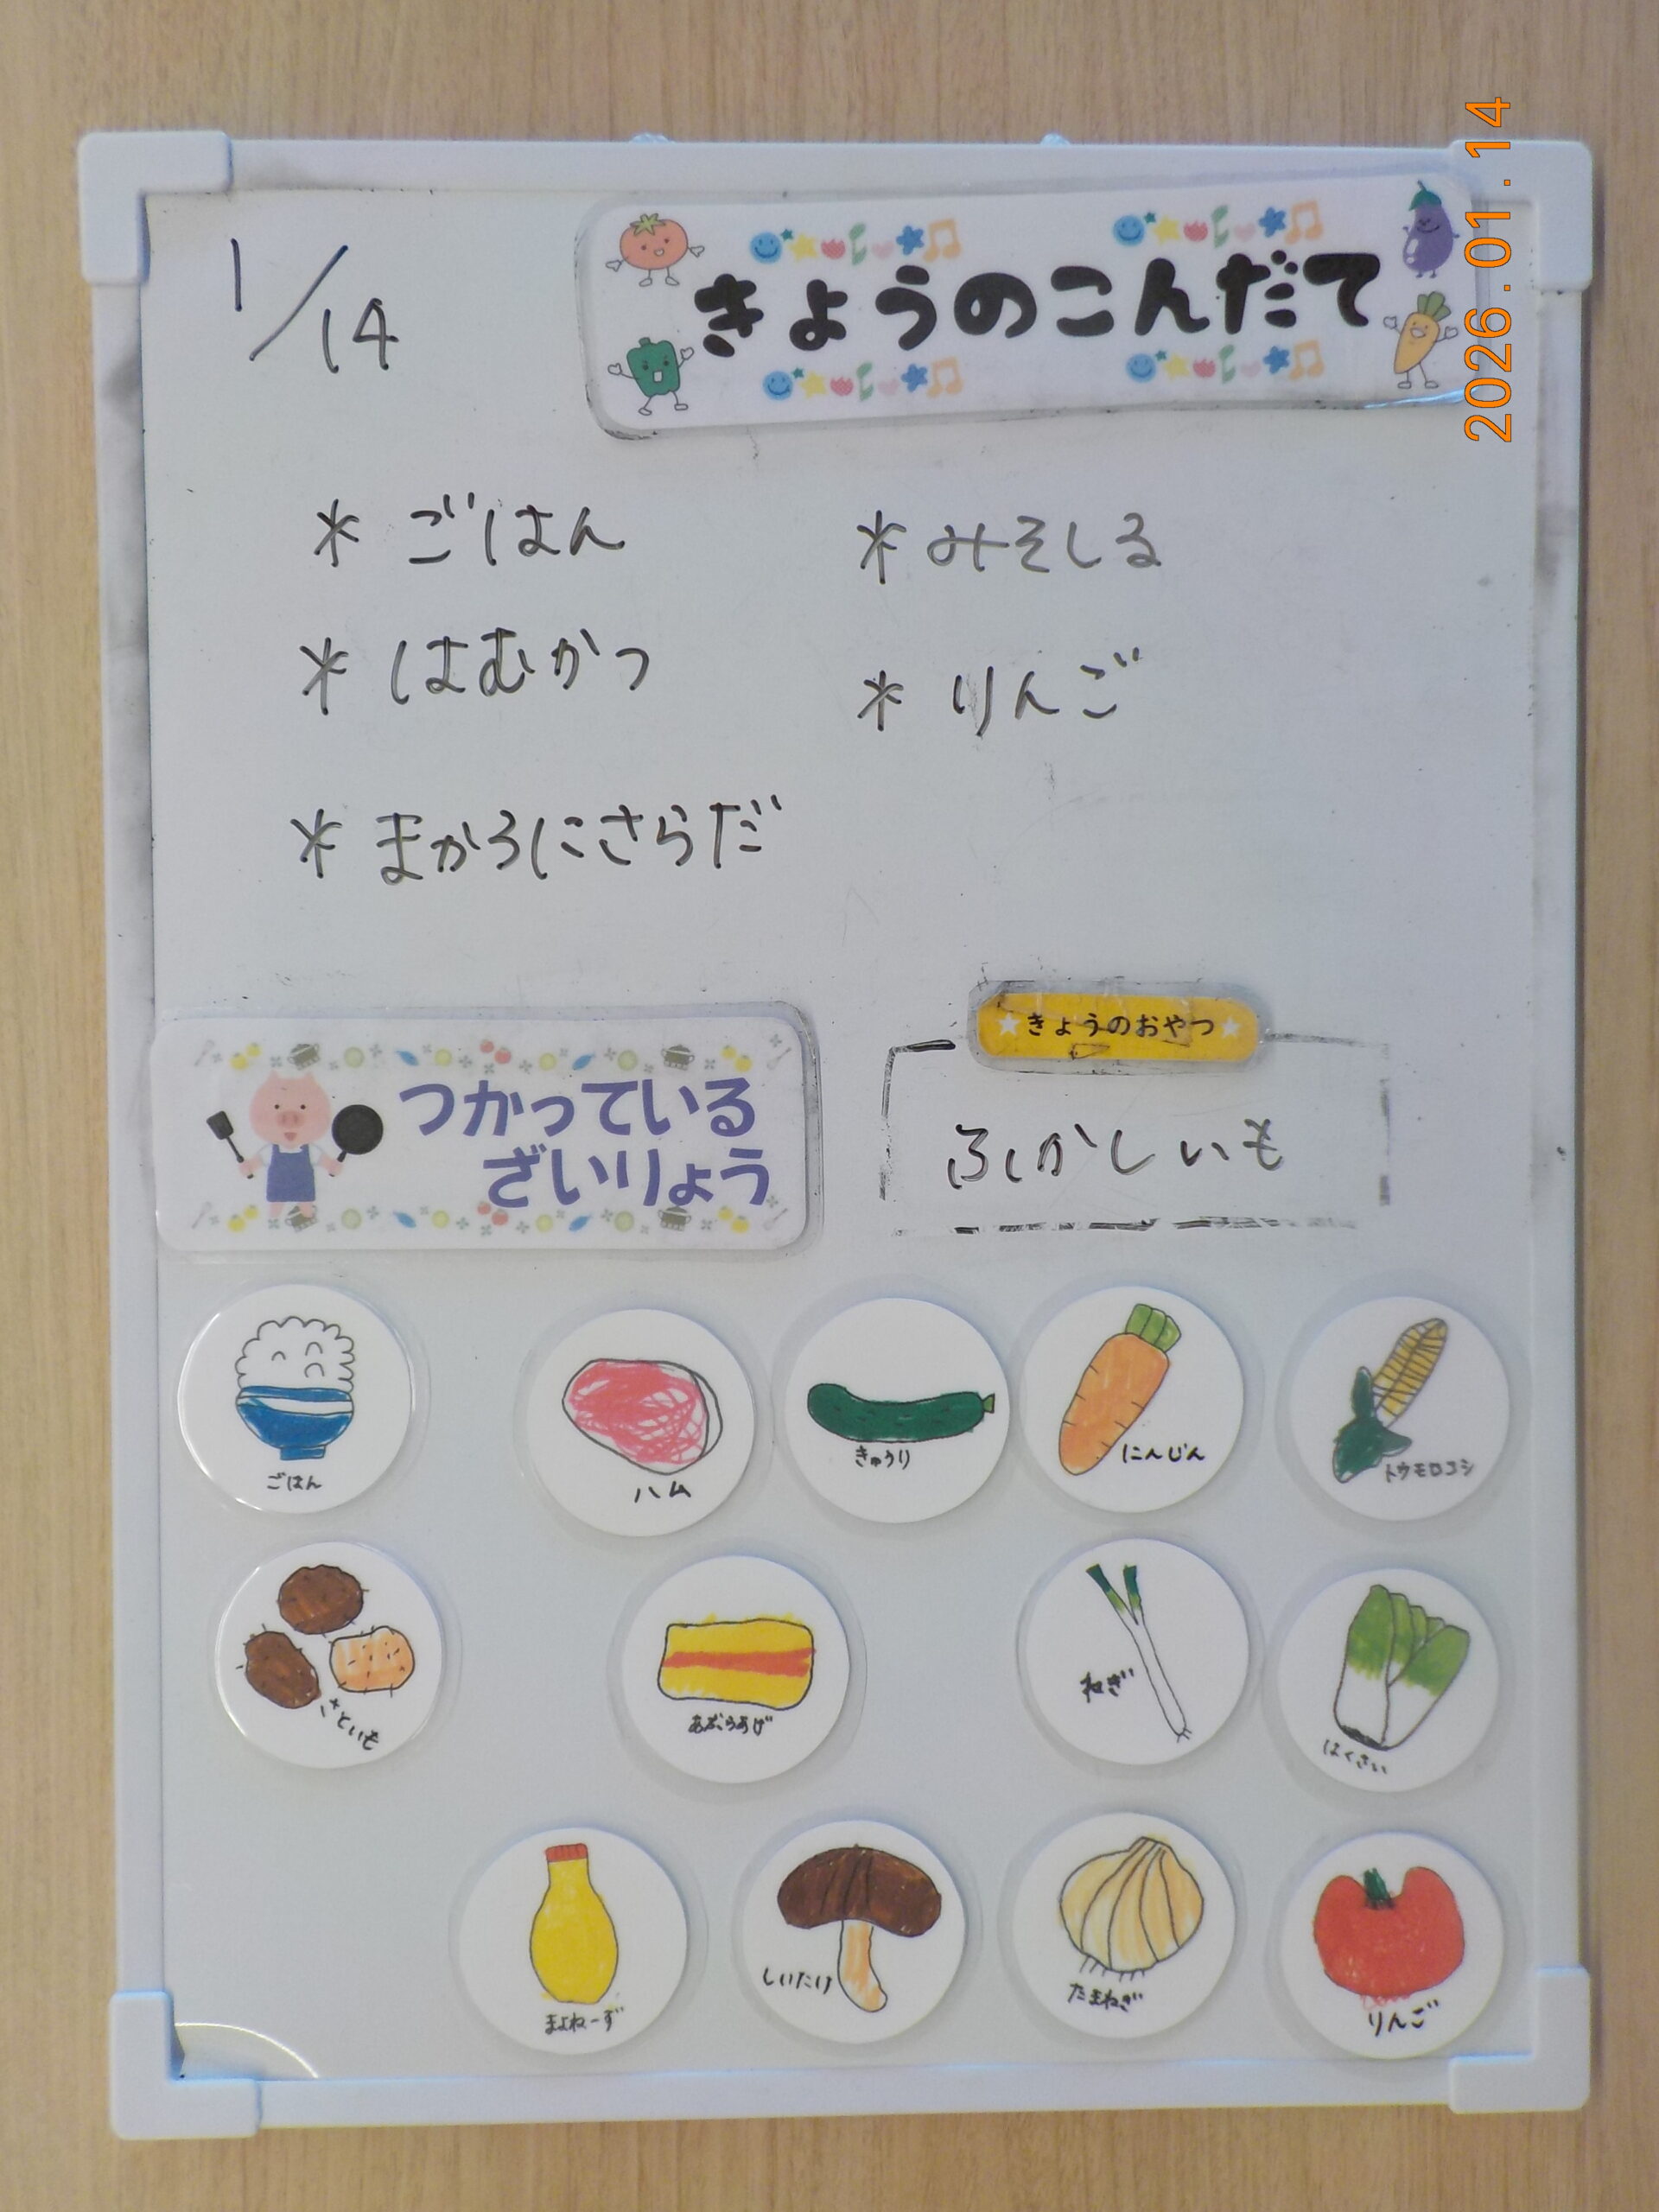 1/14
きょうのこんだて
2026.01.14
* ごはん
* はむかつ
* まかろにさらだ
* みそしる
* りんご
きょうのおやつ
ふかしいも
つかっている
ざいりょう
ごはん
ハム
きゅうり
にんじん
トウモロコシ
さといも
あぶらあげ
ねぎ
はくさい
まよねーず
しいたけ
たまねぎ
りんご